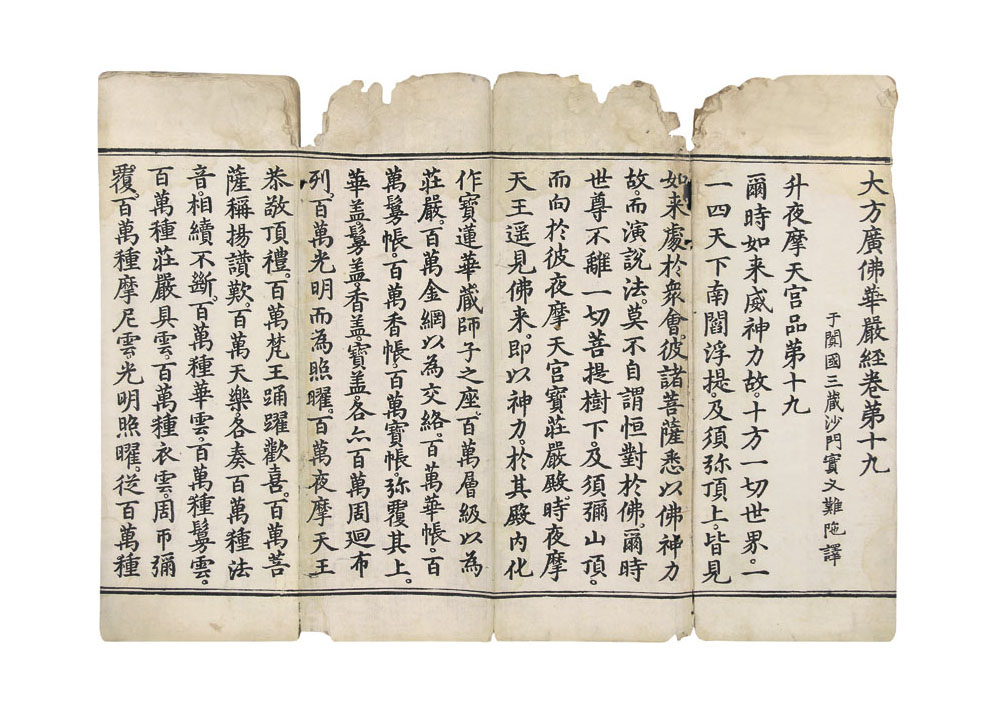 大方廣佛華嚴經卷第十九
于闐國三藏沙門實叉難陁譯
升夜摩天宮品第十九
爾時如来威神力故。十方一切世界。一
一四天下南閻浮提。及須弥頂上。皆見
如来處於衆會。彼諸菩薩悉以佛神力
故。而演說法。莫不自謂恒對於佛。爾時
世尊不離一切菩提樹下。及須彌山頂。
而向於彼夜摩天宮寶莊嚴殿。時夜摩
天王遥見佛来。即以神力。於其殿内化
作寶蓮華藏師子之座。百萬層級以為
莊嚴。百萬金網以為交絡。百萬華帳。百
萬鬘帳。百萬香帳。百萬寶帳。弥覆其上。
華盖。鬘盖。香盖。寶盖。各亦百萬周廻布
列。百萬光明而為照曜。百萬夜摩天王
恭敬頂禮。百萬梵王踊躍歡喜。百萬菩
薩稱揚讚歎。百萬天樂。各奏百萬種法
音。相續不斷。百萬種華雲。百萬種鬘雲。
百萬種莊嚴具雲。百萬種衣雲。周帀彌
覆。百萬種摩尼雲。光明照曜。從百萬種